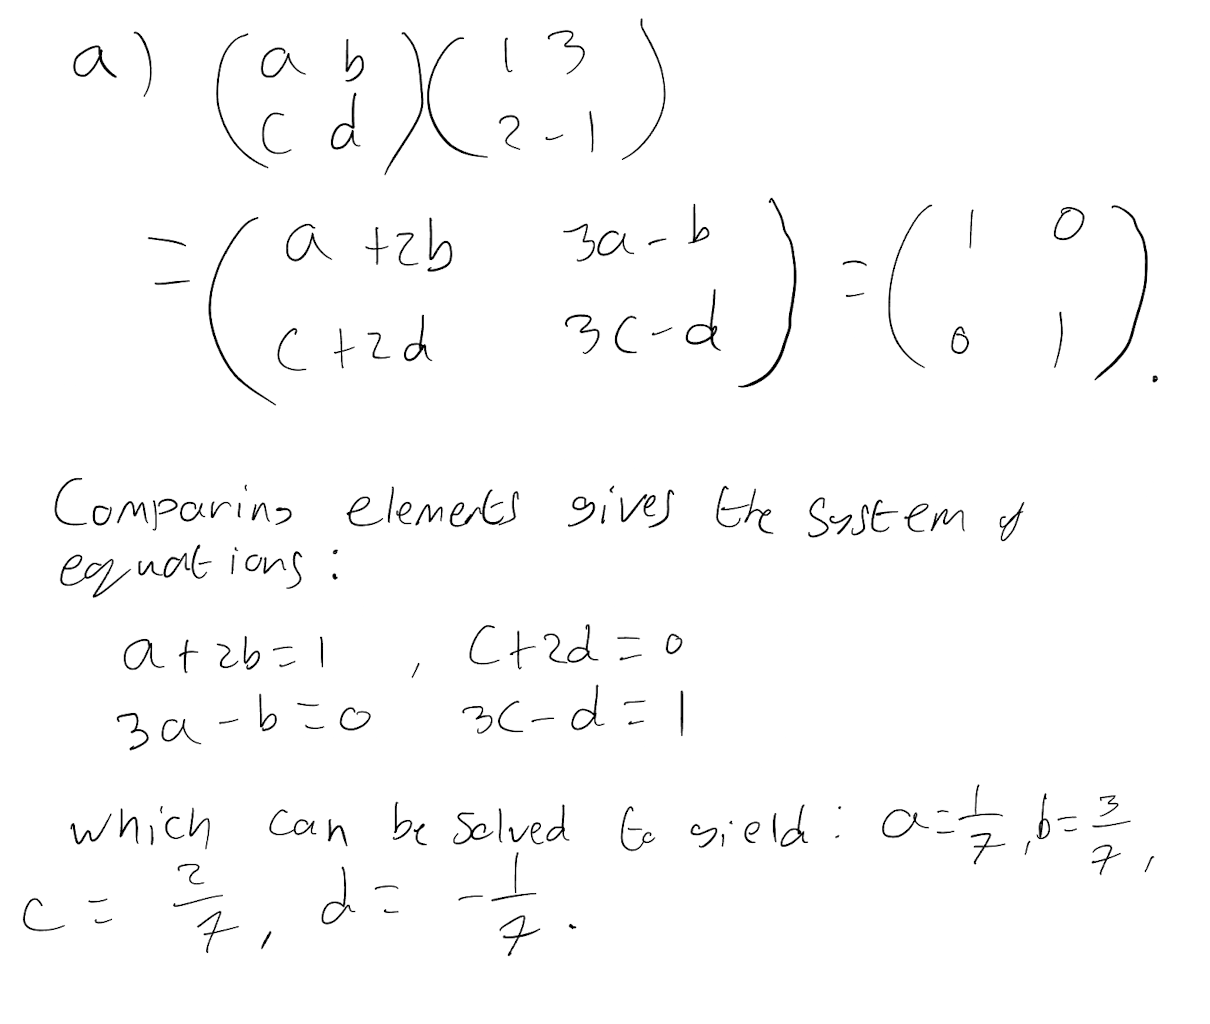 a) (a b)(1 3)
(c d)(2 -1)
= (a +2b 3a-b) = (1 0)
(c +2d 3c-d) (0 1).
Comparing elements gives the system of
equations:
a+2b=1 , c+2d=0
3a-b=0 3c-d=1
which can be solved to yield: a=1/7, b=3/7,
c=2/7, d=-1/7.